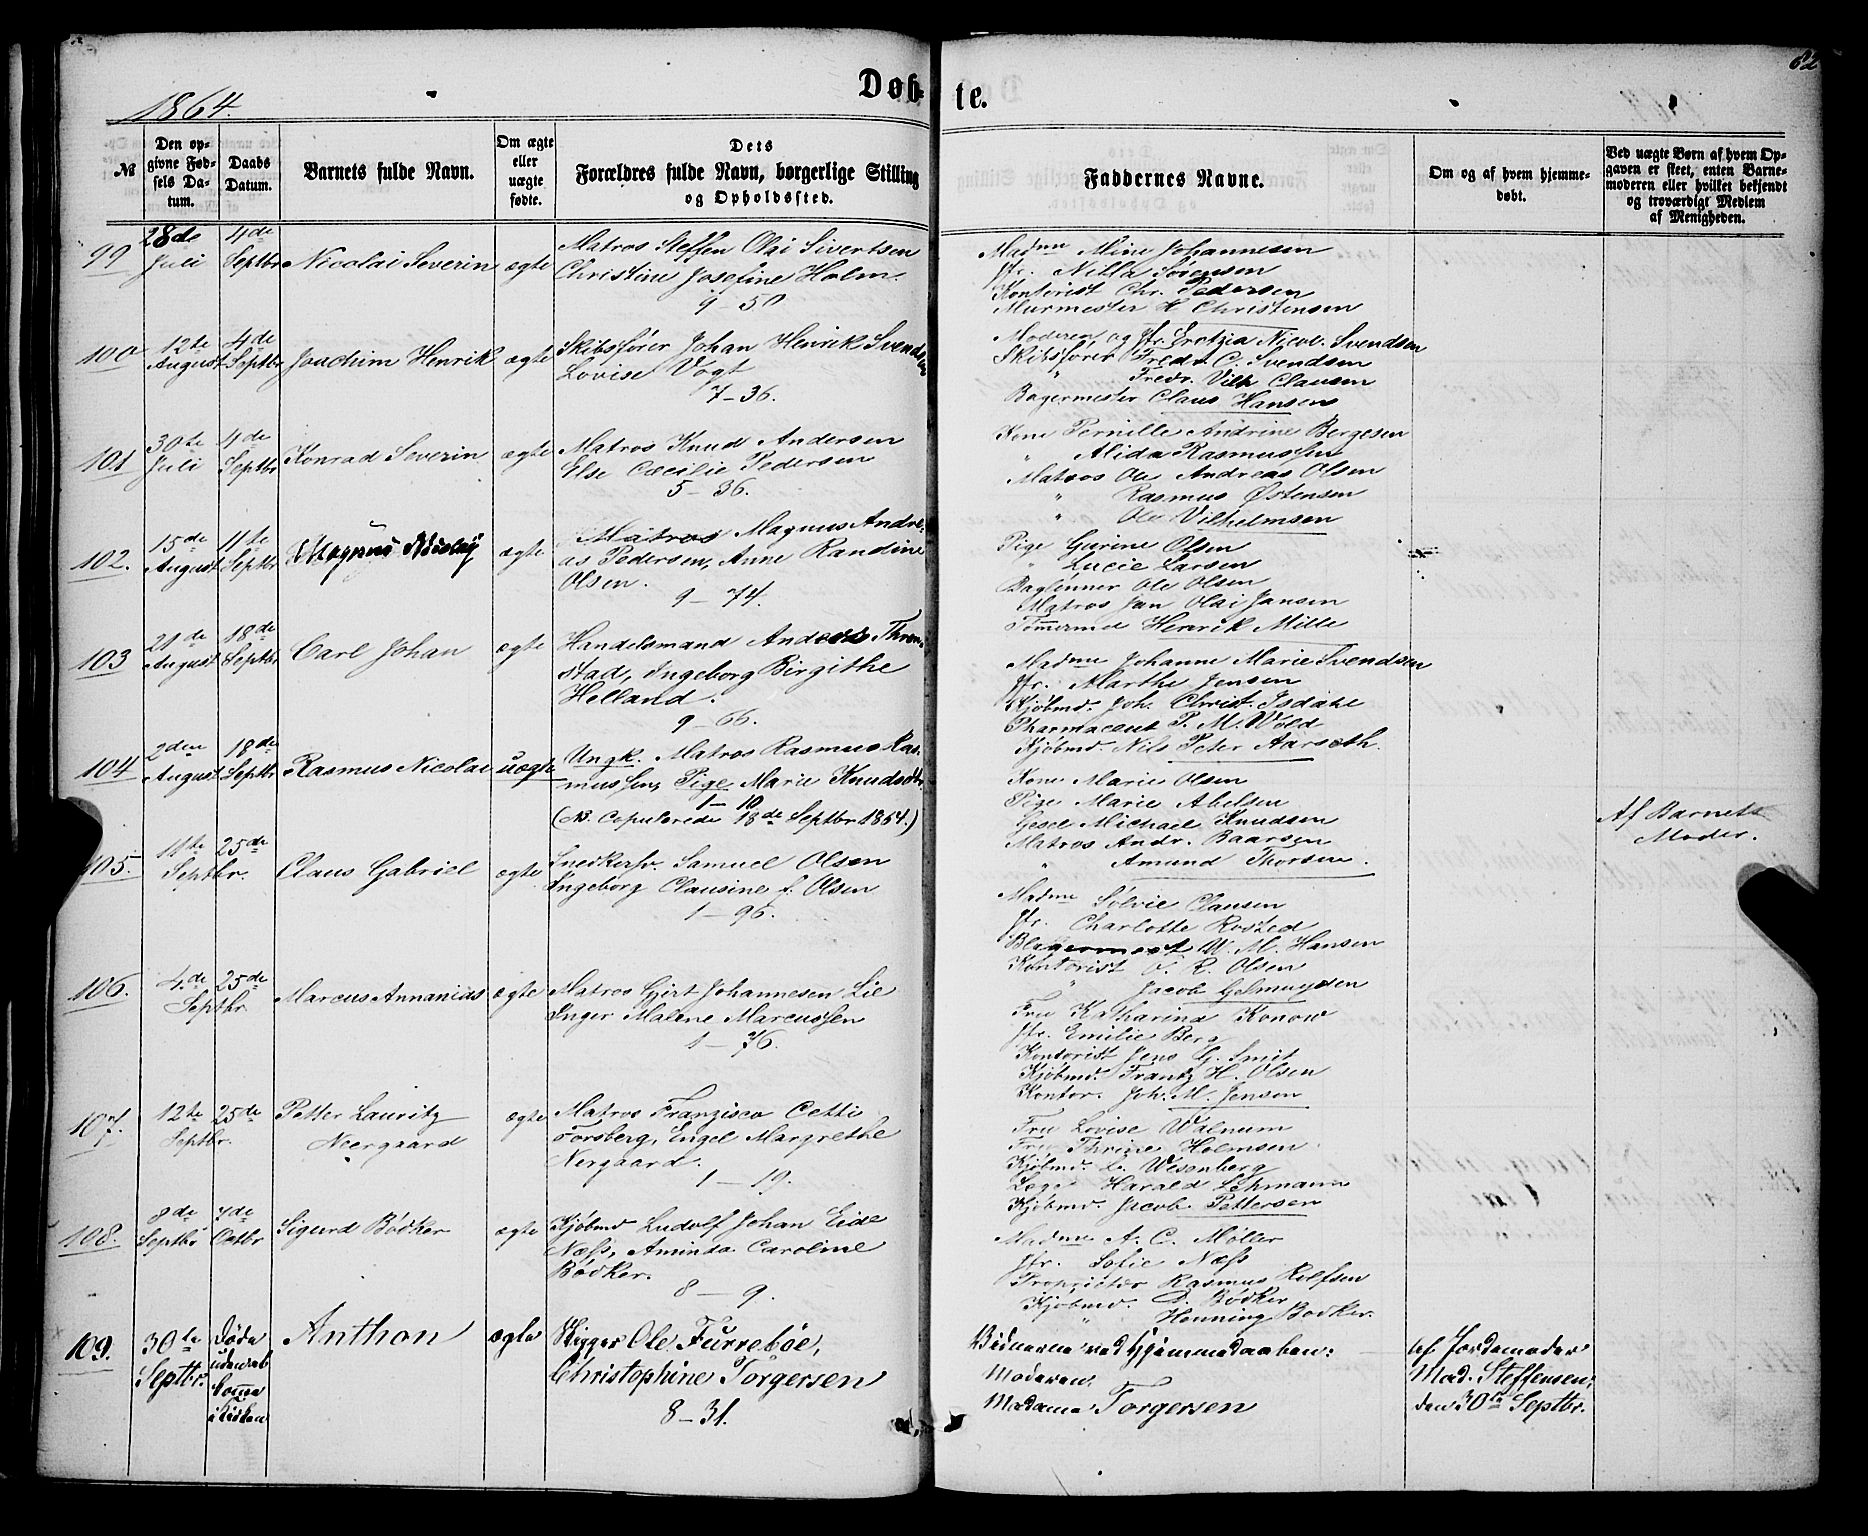 82
1864.
Døb-
te.
№
Den op-
givne Fød-
sels Da-
tum.
Daabs
Datum.
Barnets fulde Navn.
Om ægte
eller
uægte
fødte.
Dets
Forældres fulde Navn, borgerlige Stilling
og Opholdssted.
Faddernes Navne.
Om og af hvem hjemme-
døbt.
Ved uægte Børn af hvem Op-
gaven er skeet, enten Barne-
moderen eller hvilket bekjendt
og troværdigt Medlem
af Menigheden.
99
28de
Juli
4de
Septbr
Nicolai Severin
ægte
Matros Steffen Olai Sivertsen
Christine Josefine Holm.
9-50
Madme Mine Johannesen
Jfr. Nilla Sørensen
Kontorist Chr. Pedersen
Murmester H Christensen
100
12te
August
4de
Septbr
Joachim Henrik
ægte
Skibsfører Johan Henrik Svendsen
Lovise Vogt
7-36.
Moderen, og Jfr. Gretzia Nicol. Svendsen
Skibsfører Fredr. C. Svendsen
" Fredr. Vilh Clausen
Bagermester Claus Hansen
101
30te
Juli
4de
Septbr
Konrad Severin
ægte
Matros Knud Andersen
Else Cæcilie Pedersen
5-36.
Kone Pernille Andrine Bergesen
" Alida Rasmussen
Matros Ole Andreas Olsen
" Rasmus Østensen
" Ole Vilhelmsen
102.
15de
August
11te
Septbr
Magnus Nicolay
ægte
Matros Magnus Andre-
as Pedersen, Anne Randine
Olsen.
9-74.
Pige Gurine Olsen
" Lucie Larsen
Dagl\u00f8nner Ole Olsen
Matros Jan Olai Jansen
Tømermd Henrik Mille
103
21de
August
18de
Septbr
Carl Johan
ægte
Handelsmand Anders Thron-
stad, Ingeborg Birgithe
Helland.
9-66.
Madme Johanne Marie Svendsen
Jfr. Marthe Jensen
Kjøbmd. Joh. Christ. Isdahl
Pharmaceut P. M. Wold
Kjøbmd Nils Peter Aarseth.
104
2den
August
18de
Septbr
Rasmus Nicolai
uægte
Ungk. Matros Rasmus Ras-
mussen, Pige Marie Knudsdtr.
1-10
(NB. Copulerede 18de Septbr 1864.)
Kone Marie Olsen
Pige Marie Abelsen
Gesel Michael Knudsen
Matros Andr. Baarsen
" Amund Thorsen.
Af Barnets
Moder.
105.
11te
Septbr.
25de
Claus Gabriel
ægte
Snedkersv. Samuel Olsen
Ingeborg Clausine f. Olsen
1-96.
Madme Sølvie Clausen
Jfr. Charlotte Rosted
W. M. Hansen
Kontorist O. R. Olsen
" Jacob Gelmuyden
106.
4de
Septbr.
25de
Marcus Annanias
ægte
Matros Gjert Johannesen Lie
Inger Malene Marcussen
1-76.
Fru Katharina Konow
Jfr. Emilie Berg
Kontorist Jens G. Smit
Kjøbmd. Frantz H. Olsen
Kontor. Joh. M. Jensen
107.
12te
Septbr.
25de
Petter Lauritz
Neergaard
ægte
Matros Franzisco Cetti
Forsberg, Engel Margrethe
Nergaard.
1-19.
Fru Lovise Walnum
Fru Thrine Holmsen
Kjøbmd. L. Wesenberg
Læge Harald Lehmann
Kjøbmd. Jacob Pettersen
108.
8de
Septbr
2de
Octbr
Sigurd Bödker
ægte
Kjøbmd Ludolf Johan Eide
Næss, Aminda Caroline
Bödker.
8-9.
Madme A. C. Møller
Jfr. Sofie Næss
Proprietær Rasmus Rolfsen
Kjøbmd. D. Bödker
" Henning Bodker.
109.
30te
Septbr.
Døde
uden at
komme
i Kirken
Anthon
ægte
Skipper Ole Furrebøe,
Christophine Torgersen
8-31.
Vidnerne ved Hjemmedaaben:
Moderen,
Madame Torgersen
af Jordemoder
Mad. Steffensen,
den 30te Septbr.